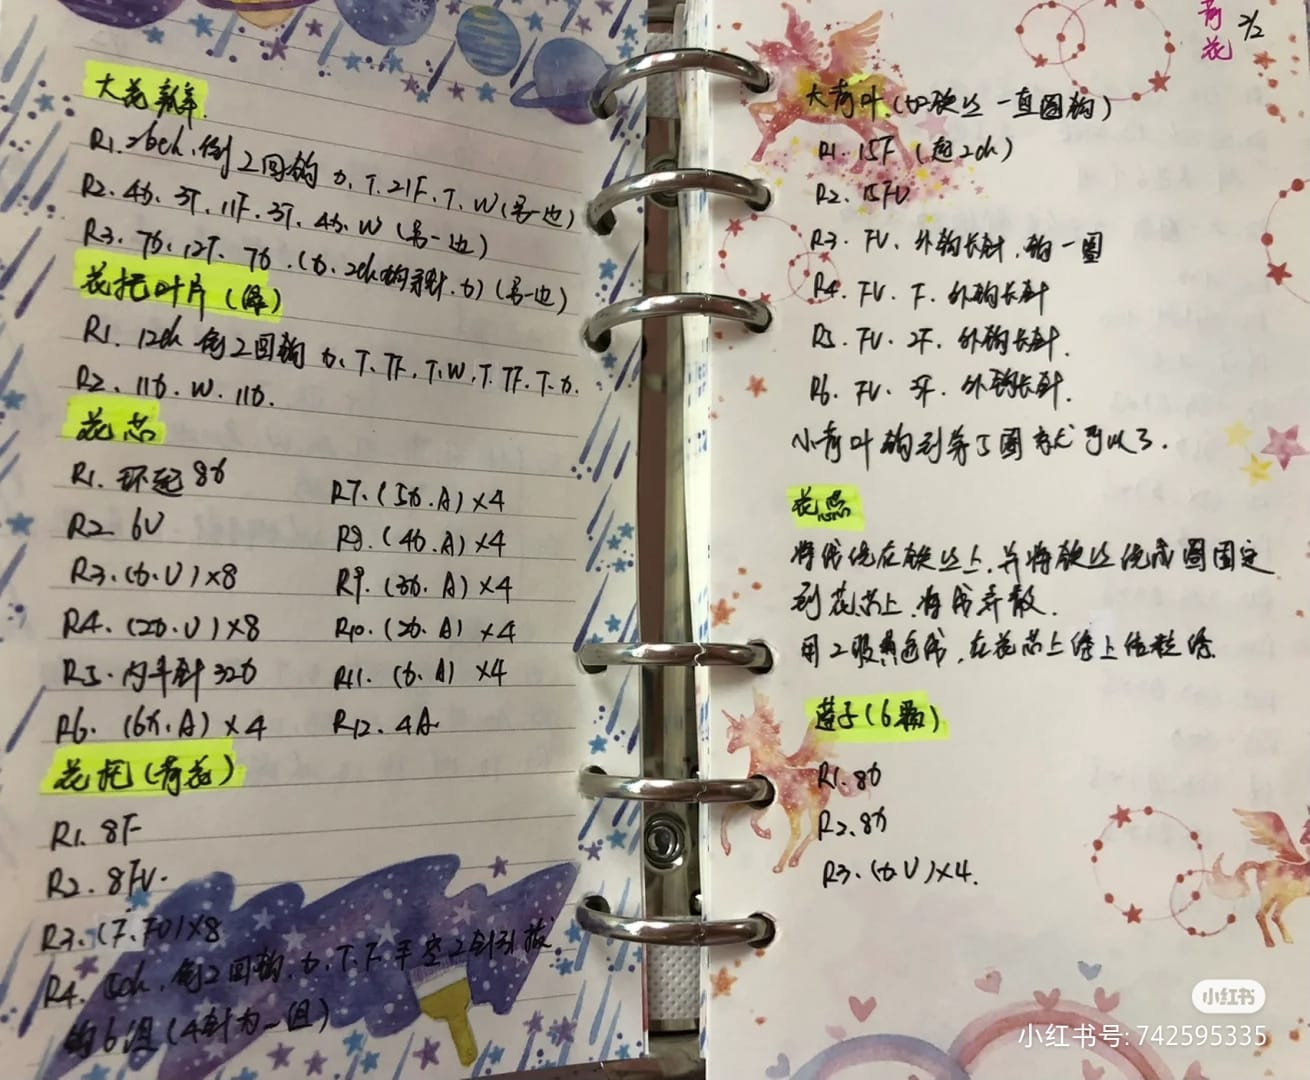 大花瓣
R1.26ch.倒2回钩 x.T.21F.T.W(另一边)
R2.4x.3T.11F.3T.4x.W(另一边)
R3.7x.12T.7x.(x.2ch狗牙针.x)(另一边)
花托叶片(绿)
R1.12ch 倒2回钩 x.T.7F.T.W.T.7F.T.x.
R2.11x.W.11x.
花芯
R1.环起8x
R2 6V
R3.(x.V)×8
R4.(2x.V)×8
R5.内半针32x
R6.(6x.A)×4
R7.(5x.A)×4
R8.(4x.A)×4
R9.(3x.A)×4
R10.(2x.A)×4
R11.(x.A)×4
R12.4A
花托(荷花)
R1.8F
R2.8FV.
R3.(F.FV)×8
R4.5ch.倒2回钩.x.T.F.F空2针引拔
钩6组(4针为一组)
荷花 2/2
大荷叶(加铁丝一直圈钩)
R1.15F(起2ch)
R2.15FV
R3.FV.外钩长针.钩一圈
R4.FV.F.外钩长针
R5.FV.2F.外钩长针.
R6.FV.3F.外钩长针.
小荷叶钩到第5圈就可以了.
花蕊
将线绕在铁丝上.并将铁丝绕成圈固定
到花芯上.将线弄散.
用2股黄色线.在花芯上绣上结粒绣.
莲子(6颗)
R1.8x
R2.8x
R3.(x.V)×4.
小红书
小红书号: 742595335